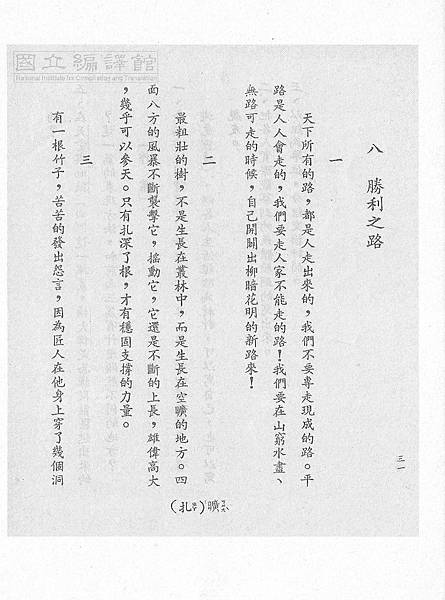 國立編譯館
National Institute for Compilation and Translation
八　勝利之路
一
天下所有的路，都是人走出來的，我們不要專走現成的路。平
路是人人會走的，我們要走人家不能走的路！我們要在山窮水盡、
無路可走的時候，自己開闢出柳暗花明的新路來！
二
最粗壯的樹，不是生長在叢林中，而是生長在空曠的地方。四
面八方的風暴不斷襲擊它，搖動它，它還是不斷的上長，雄偉高大
，幾乎可以參天。只有扎深了根，才有穩固支撐的力量。
三
有一根竹子，苦苦的發出怨言，因為匠人在他身上穿了幾個洞
三一
曠
（扎）